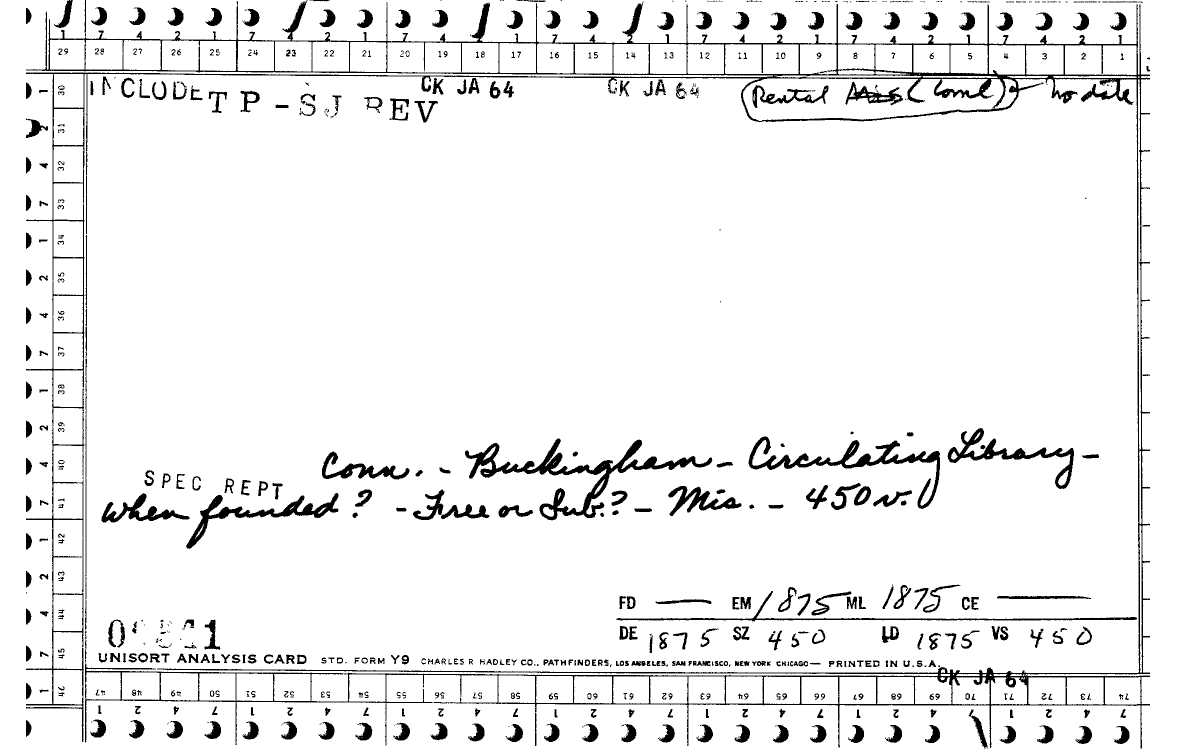 7 4 2 1 7 4 2 1 7 4 2 1 7 4 2 1 7 4 2 1 7 4 2 1 7 4 2 1
29 28 27 26 25 24 23 22 21 20 19 18 17 16 15 14 13 12 11 10 9 8 7 6 5 4 3 2 1
INCLUDE TP-SJ REV CK JA 64 CK JA 64 Rental Mis (Coml) no date
30
31
32
33
34
35
36
37
38
39
40
41
42
43
44
45
46
Conn. - Buckingham - Circulating Library -
SPEC REPT
when founded? - Free or Sub.? - Mis. - 450 v.
FD — EM 1875 ML 1875 CE —
DE 1875 SZ 450 LD 1875 VS 450
UNISORT ANALYSIS CARD STD. FORM Y9 CHARLES R HADLEY CO., PATHFINDERS, LOS ANGELES, SAN FRANCISCO, NEW YORK CHICAGO — PRINTED IN U.S.A.
CK JA 64
47 48 49 50 51 52 53 54 55 56 57 58 59 60 61 62 63 64 65 66 67 68 69 70 71 72 73 74
1 2 4 7 1 2 4 7 1 2 4 7 1 2 4 7 1 2 4 7 1 2 4 7 1 2 4 7